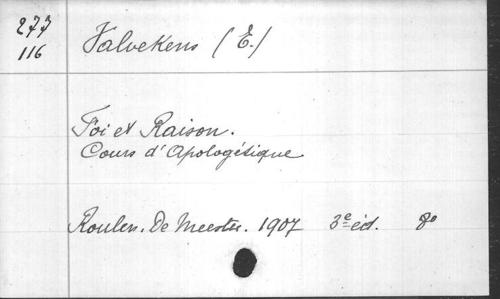 273
116
Valvekens (E.)
Foi et Raison.
Cours d'Apologétique
Roulers. De Meester. 1907 3e éd. 8o